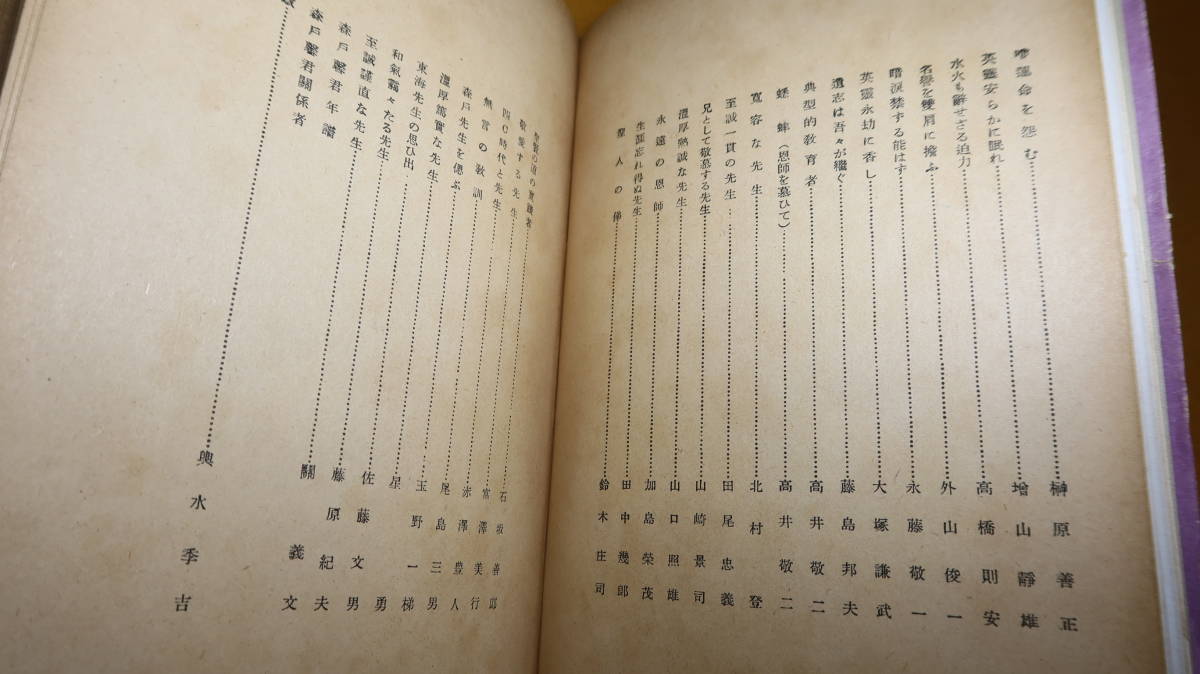 運命を怨む……榊原善正
英靈安らかに眠れ……增山靜雄
水火も辭せざる迫力……高橋則安
名譽を雙肩に擔ふ……外山俊一
暗淚禁ずる能はず……永藤敬一
英靈永劫に香し……大塚謙武
遺志は吾々が繼ぐ……藤島邦夫
典型的教育者……高井敬二
蟋蟀(恩師を慕ひて)……高井敬二
寬容な先生……北村登
至誠一貫の先生……田尾忠義
兄として敬慕する先生……山崎景司
溫厚熟誠な先生……山口照雄
永遠の恩師……加島榮茂
生涯忘れ得ぬ先生……田中幾郎
聖人の俤……鈴木庄司
聖賢の道の實踐者……石坂善郎
敬愛する先生……富澤美行
四C時代と先生……赤澤豊人
無言の教訓……尾島三男
森戶先生を偲ぶ……玉野一梯
溫厚篤實な先生……星勇
東海先生の思ひ出……佐藤文男
和氣靄々たる先生……藤原紀夫
至誠謹直な先生……關義文
森戶馨君年譜
森戶馨君關係者
……輿水季吉